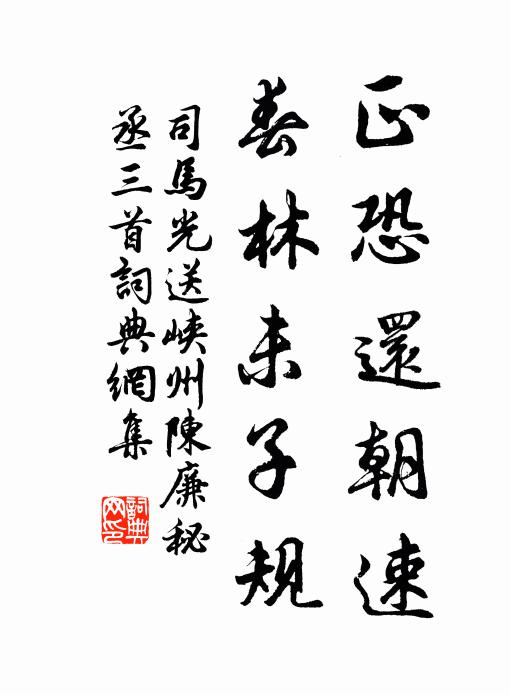 正恐還朝速
春林未子規
司馬光送峽州陳廉秘
丞三首詞典網集
詞典
網印